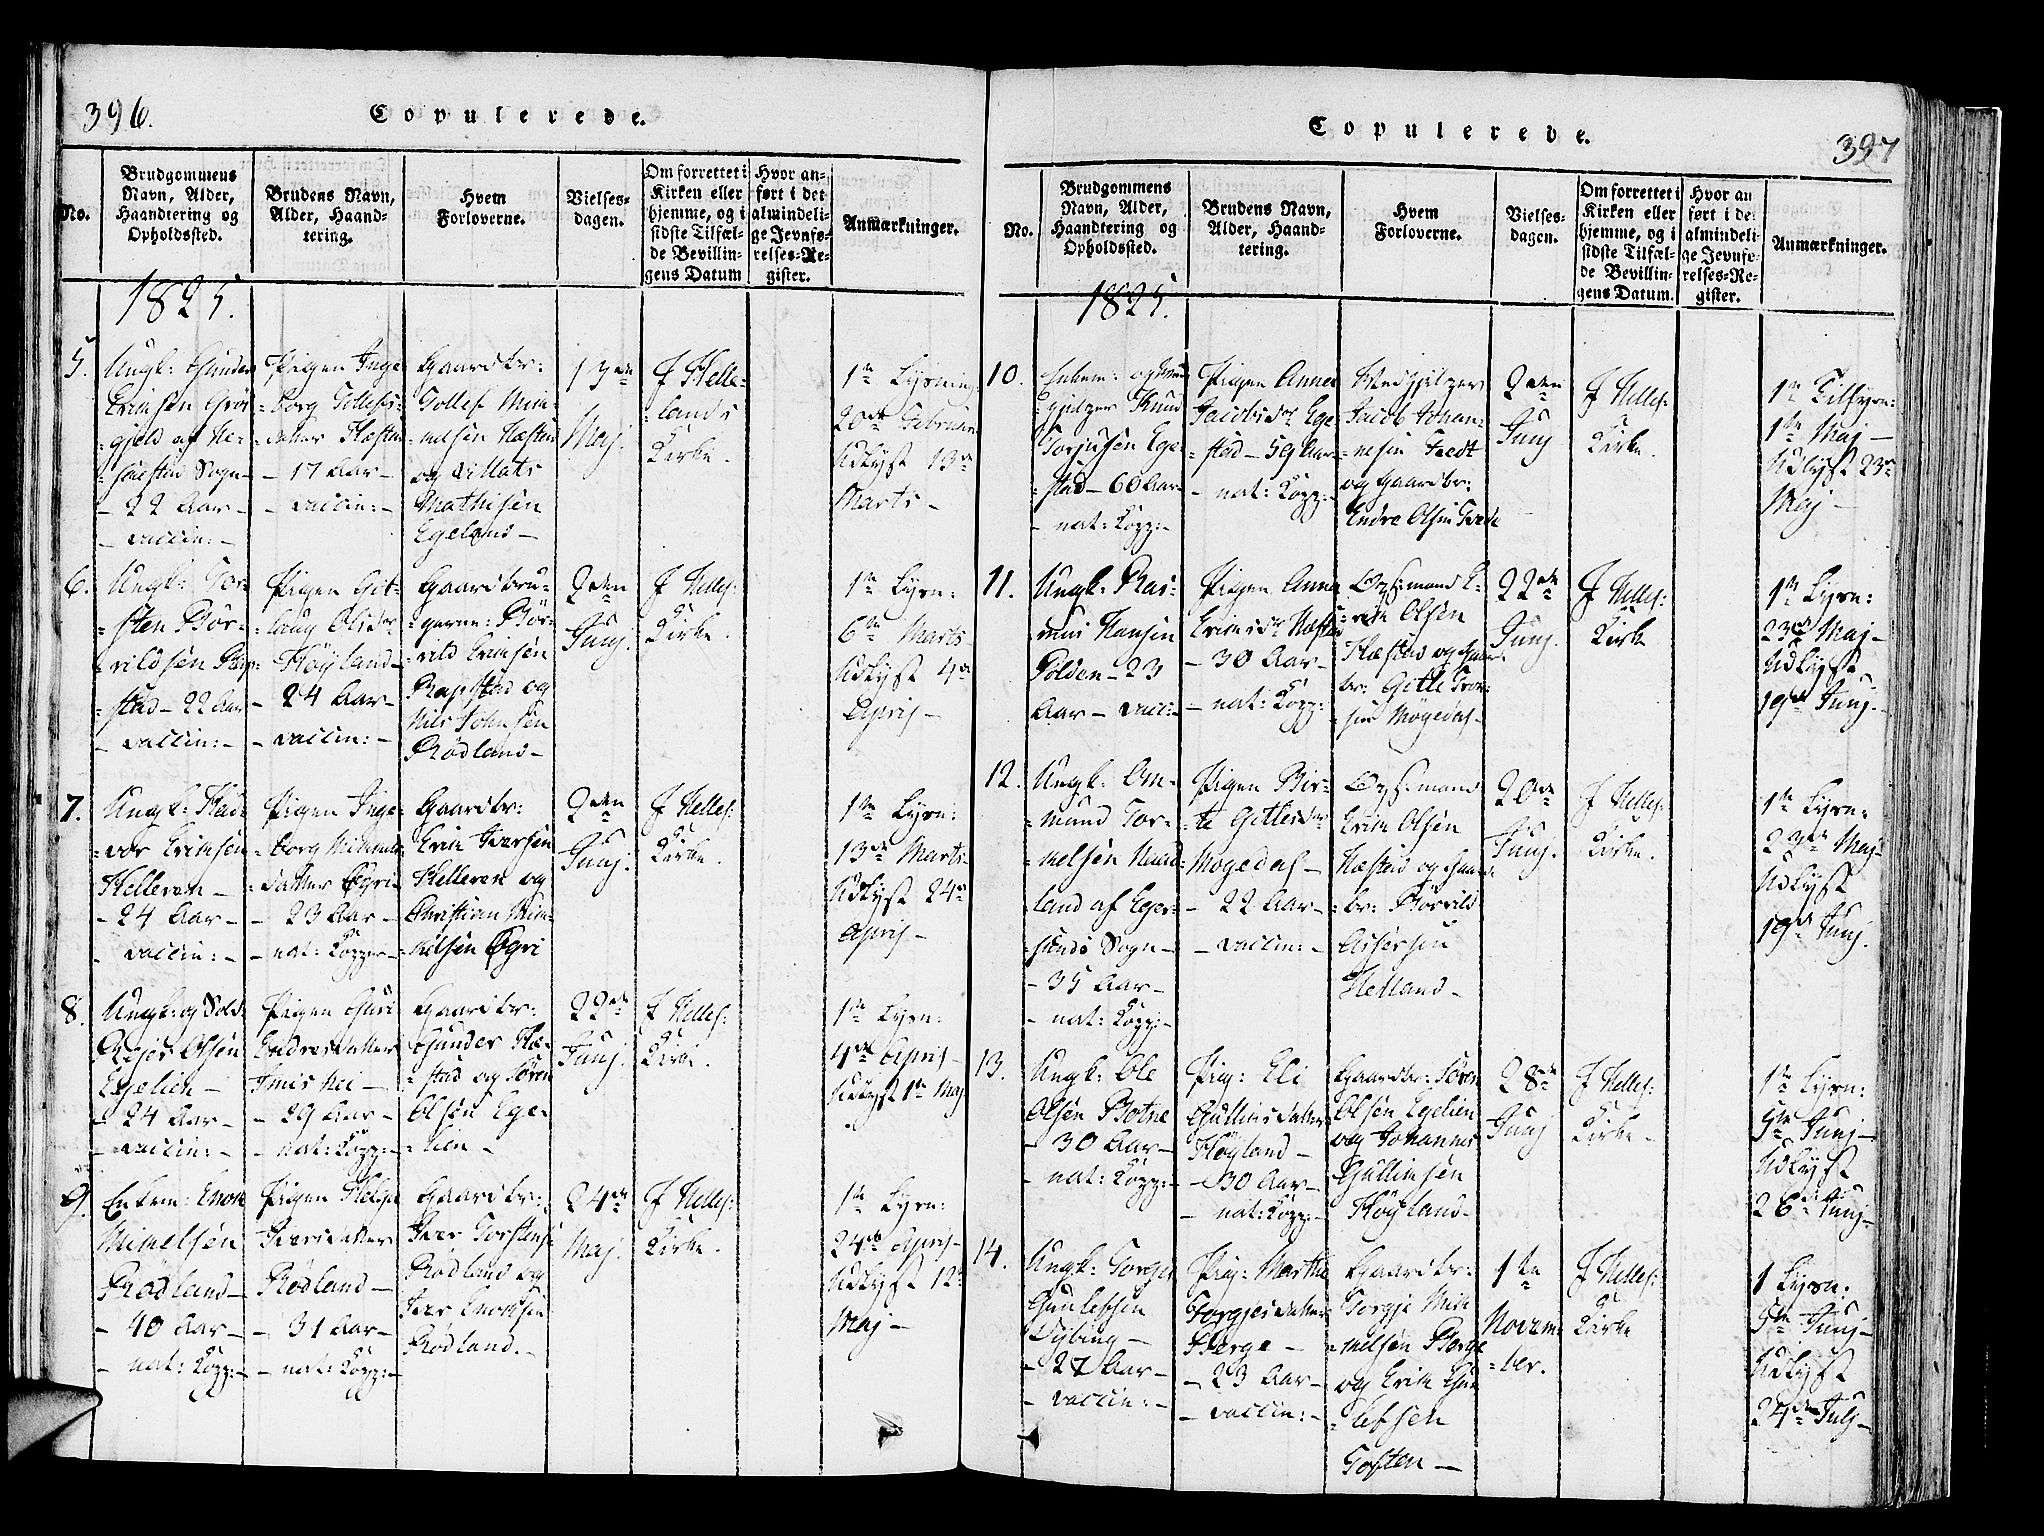 396.
Copulerede.
No.
Brudgommens
Navn, Alder,
Haandtering og
Opholdssted.
Brudens Navn,
Alder, Haand-
tering.
Hvem
Forloverne.
Vielses-
dagen.
Om forrettet i
Kirken eller
hjemme, og i
sidste Tilfæl-
de Bevillin-
gens Datum
Hvor an-
ført i det
almindeli-
ge Jevnfø-
relses-Re-
gister.
Anmærkninger.
1825.
5.
Ungk: Gunder
Erichsen
=gjeld af He-
Sogn-
- 22 Aar-
- vaccin:-
Pigen Inge
=borg Tollefs-
=datter Hæstad
- 17 Aar-
- vaccin:-
Gaardbr:
Tollef Mik-
=kelsen Hæstad
og Mats
Mathisen
Egeland-
13de
Maj.
I Helle-
=lands
Kirke.
1te Lysning
20de Februar
Udlyst 13de
Marts-
6.
Ungk: Tor-
=sten Bør-
=vildsen Rap-
=stad- 22 Aar
- vaccin:-
Pigen Git-
=laug Olsdr
Høyland-
- 24 Aar-
- vaccin:-
Gaardbru-
=gerne: Bør-
=vild Erichsen
Rapstad og
Nils Johnsen
Rødland-
2den
Junj.
I Hellel:
Kirke.
1te Lysn:
6te Marts
Udlyst 4de
Apris-
7.
Ungk: Had-
=vor Erichsen
Helleren-
- 24 Aar-
- vaccin:-
Pigen Inge-
=borg Mikkels-
=datter Egri
- 23 Aar-
- nat: Kopper-
Gaardbr:
Erik Iversen
Helleren og
Christian Mik-
=kelsen Egri
2den
Junj.
I Hellel:
Kirke.
1te Lysn:
13de Marts-
Udlyst 24de
Apris-
8.
Ungk: og Sold:
Rejer Olsen
Egelien-
- 24 Aar-
- vaccin:-
Pigen Guri
Endresdatter
- 29 Aar-
- nat: Kopp:-
Gaardbr:
Gunder Hæ-
=stad og Søren
Olsen Ege-
=lien-
22de
Junj.
I Hellel:
Kirke.
1te Lysn:
4de Apris-
Udlyst 1te Maj
9.
Enkem: Enok
Mikkelsen
Rødland-
- 40 Aar-
- nat: Kopp:-
Pigen Helge
Iversdatter
Rødland-
- 31 Aar-
- nat: Kopp:-
Gaardbr:
Iver Torstens
Rødland og
Iver Enoksen
Rødland.-
24de
Maj.
I Hellel:
Kirke.
1te Lysn:
24de Apris-
Udlyst 12te
Maj-
Copulerede.
397
No.
Brudgommens
Navn, Alder,
Haandtering og
Opholdssted.
Brudens Navn,
Alder, Haand-
tering.
Hvem
Forloverne.
Vielses-
dagen.
Om forrettet i
Kirken eller
hjemme, og i
sidste Tilfæl-
de Bevillin-
gens Datum.
Hvor an
ført i de
almindeli-
ge Jevnfø-
relses-Re-
gister.
Anmærkninger.
1825.
10.
Enkem: og Med
=hjelper Knud
Torjusen Ege-
=stad- 60 Aar
- nat: Kopp:-
Pigen Anna
Jacobsdr Ege
=stad- 59 Aar
- nat: Kopp:-
Medhjelper
Jacob Johan-
=nesen Tvedt
og Gaardbr:
Endre Olsen Tvedt
2den
Junj
I Hellel:
Kirke.
1te Tillysn:
1te Maj-
Udlyst 23de
Maj-
11.
Ungk: Ras-
mus Hansen
Polden- 23
Aar- vacc:-
Pigen Anna
Erichsdr Hæstad
- 30 Aar-
- nat: Kopp:-
Opsf:mand E-
=rik Olsen
Hæstad og Gaar
br: Gitle Tron-
sen Møgedal-
22de
Junj.
I Hellel:
Kirke
1te Lysn:
23de Maj-
Udlyst
19de Junj.
12.
Ungk: Om-
=mund Tor-
=kelsen Nuud-
land af Eger-
=sunds Sogn-
- 35 Aar-
- nat: Kopp:-
Pigen Bir-
=te Gitlesdr
Møgedal-
- 22 Aar-
- vaccin:-
Opsf:mand
Erik Olsen
Hæstad og Gaar
br: Børvild
Assersen
Helland-
20de
Junj.
I Hellel:
Kirke.
1te Lysn:
23de Maj-
Udlyst
19de Junj.
13.
Ungk: Ole
Olsen Botne
- 30 Aar-
- nat: Kopp:-
Pig: Eli
Gullinsdatter
Høyland-
- 30 Aar-
- nat: Kopp:-
Gaardbr: Søren
Olsen Egelien
og Johannes
Gullinsen
Høyland-
28de
Junj
I Hellel:
Kirke-
1te Lysn:
5te Junj-
Udlyst
26de Junj-
14.
Ungk: Torges
Gunlefsen
- 27 Aar-
- vaccin:-
Pig: Marthe
Torgiesdatter
Berge-
- 23 Aar-
- vaccin:-
Gaardbr:
Torgje Mik
=kelsen Berge
og Erik Gun
=lefsen
Tosten-
1te
Novem-
=ber.
I Hellel:
Kirke
1 Lysn:
5te Junj-
Udlyst
24de Julj-